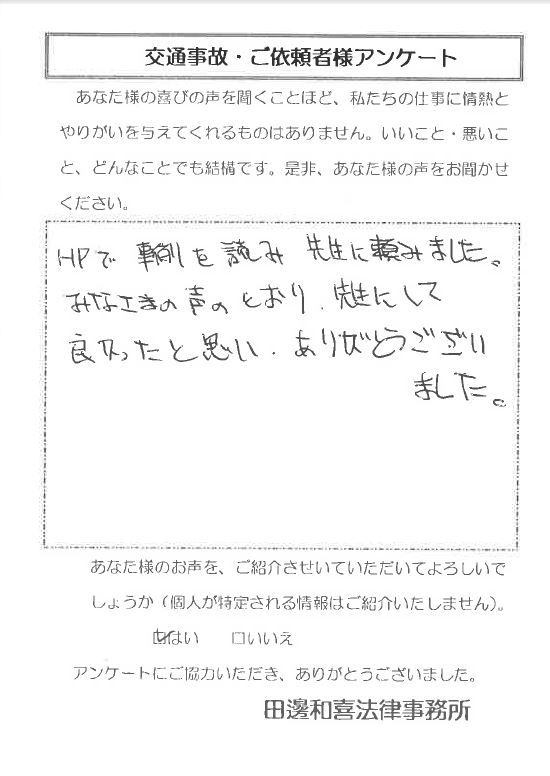 交通事故・ご依頼者様アンケート
あなた様の喜びの声を聞くことほど、私たちの仕事に情熱と
やりがいを与えてくれるものはありません。いいこと・悪いこ
と、どんなことでも結構です。是非、あなた様の声をお聞かせ
ください。
HPで 事例を 読み 先生に頼みました。
みなさまの声の とおり、先生にして
良かったと思い、ありがとうござい
ました。
あなた様のお声を、ご紹介させいていただいてよろしいで
しょうか（個人が特定される情報はご紹介いたしません）。
☑はい □いいえ
アンケートにご協力いただき、ありがとうございました。
田邊和喜法律事務所